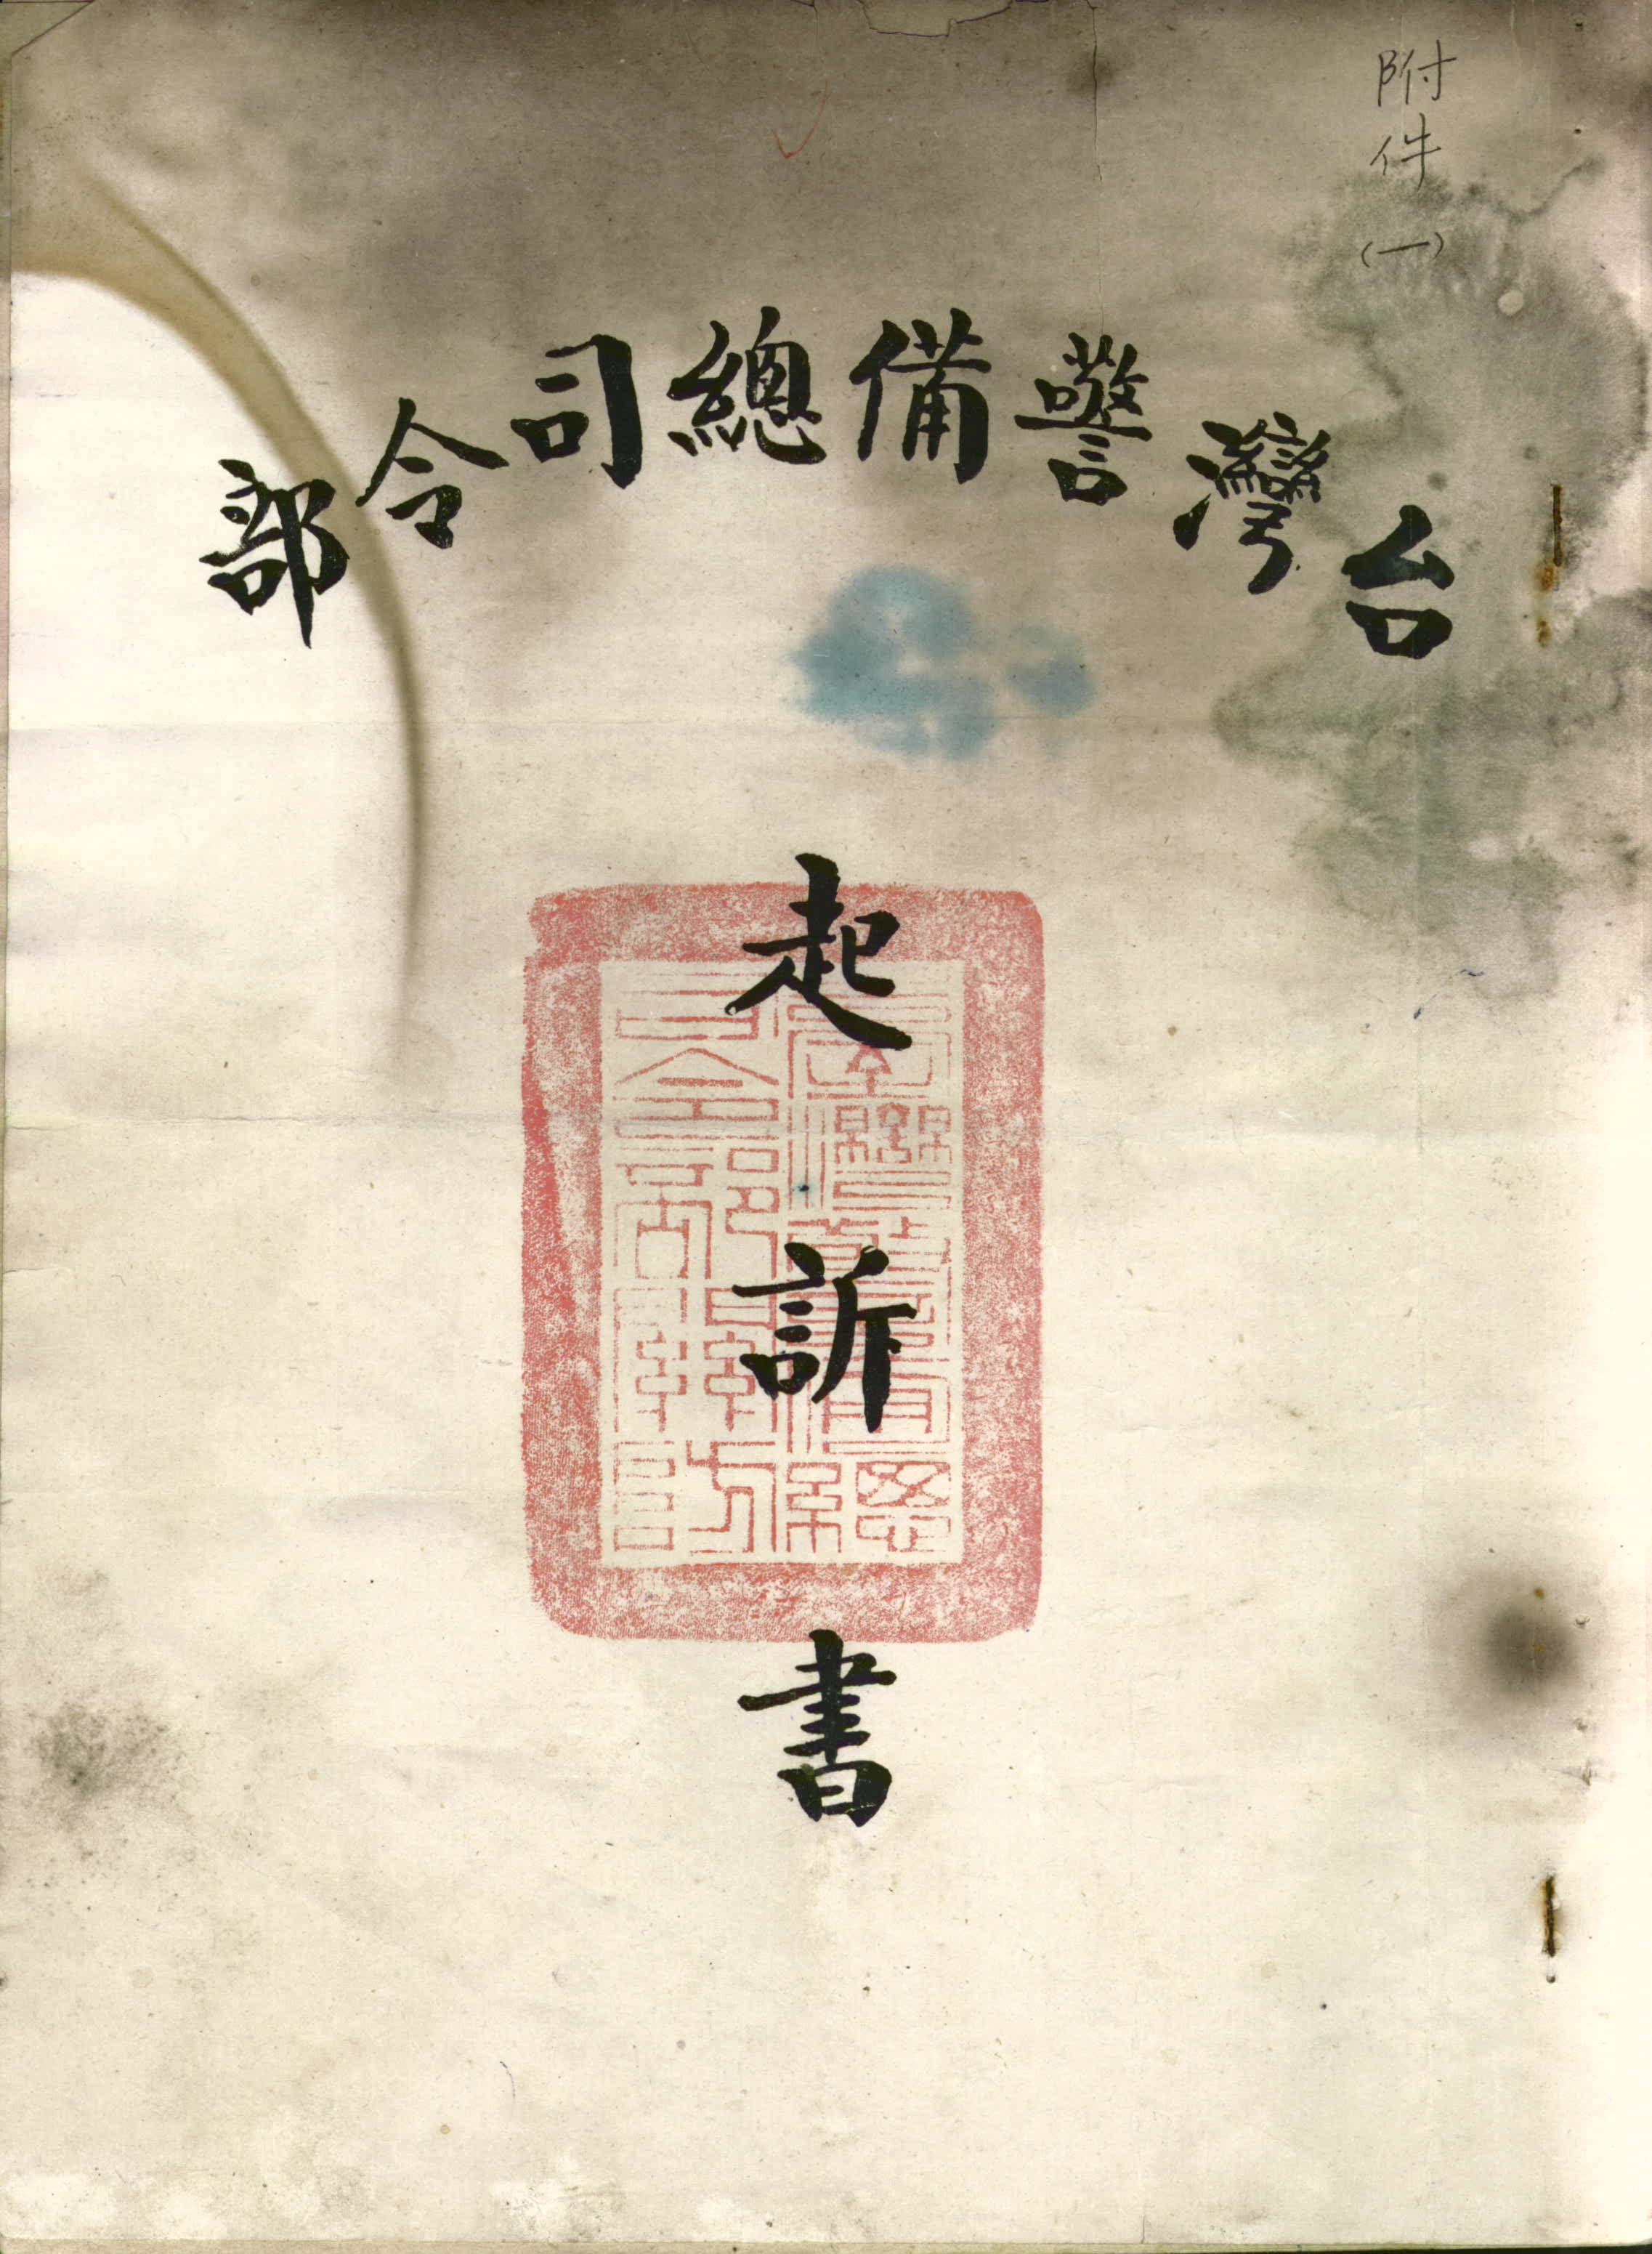 附件
(一)
台灣警備總司令部
起訴書